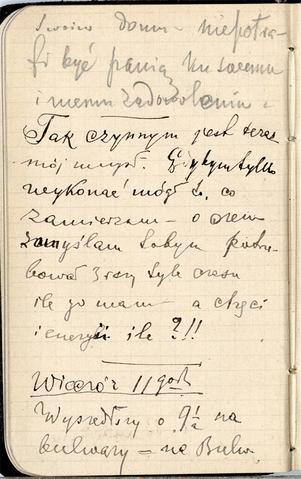 Swoim domu – niepotra-
fi być panią ku swemu
i memu zadowoleniu –
Tak czynnym jest teraz
mój umysł. Gdybym tylko
wykonać mógł to, co
zamierzam – o czem
zamyślam tobym potrze-
bował 3 razy tyle czasu
ile go mam – a chęci
i energii ile ?!!
Wieczór 11 godz
Wyszedłszy o 9½ na
bulwary – na Bulw.